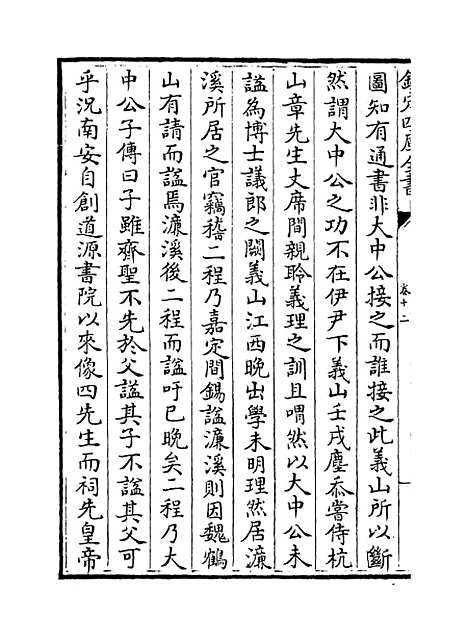 欽定四庫全書
卷十二
圖知有通書非大中公接之而誰接之此義山所以斷
然謂大中公之功不在伊尹下義山壬戌塵忝嘗侍杭
山章先生丈席間親聆義理之訓且喟然以大中公未
諡為博士議郎之闕義山江西晚出學未明理然居濂
溪所居之官竊稽二程乃嘉定間錫諡濂溪則因魏鶴
山有請而諡焉濂溪後二程而諡吁已晚矣二程乃大
中公子傳曰子雖齊聖不先於父諡其子不諡其父可
乎況南安自創道源書院以來像四先生而祠先皇帝